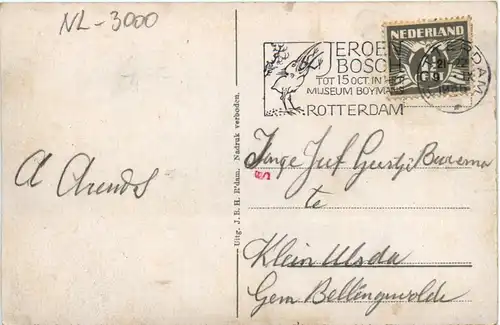 NL-3000
JEROEN
BOSCH
TOT 15 OCT. IN HET
MUSEUM BOYMANS
ROTTERDAM
NEDERLAND
A Arends
Uitg. J. B. H. R'dam. Nadruk verboden.
Jonge Juf Geertje Buurema
te
Klein Ulsda
Gem Bellingwolde